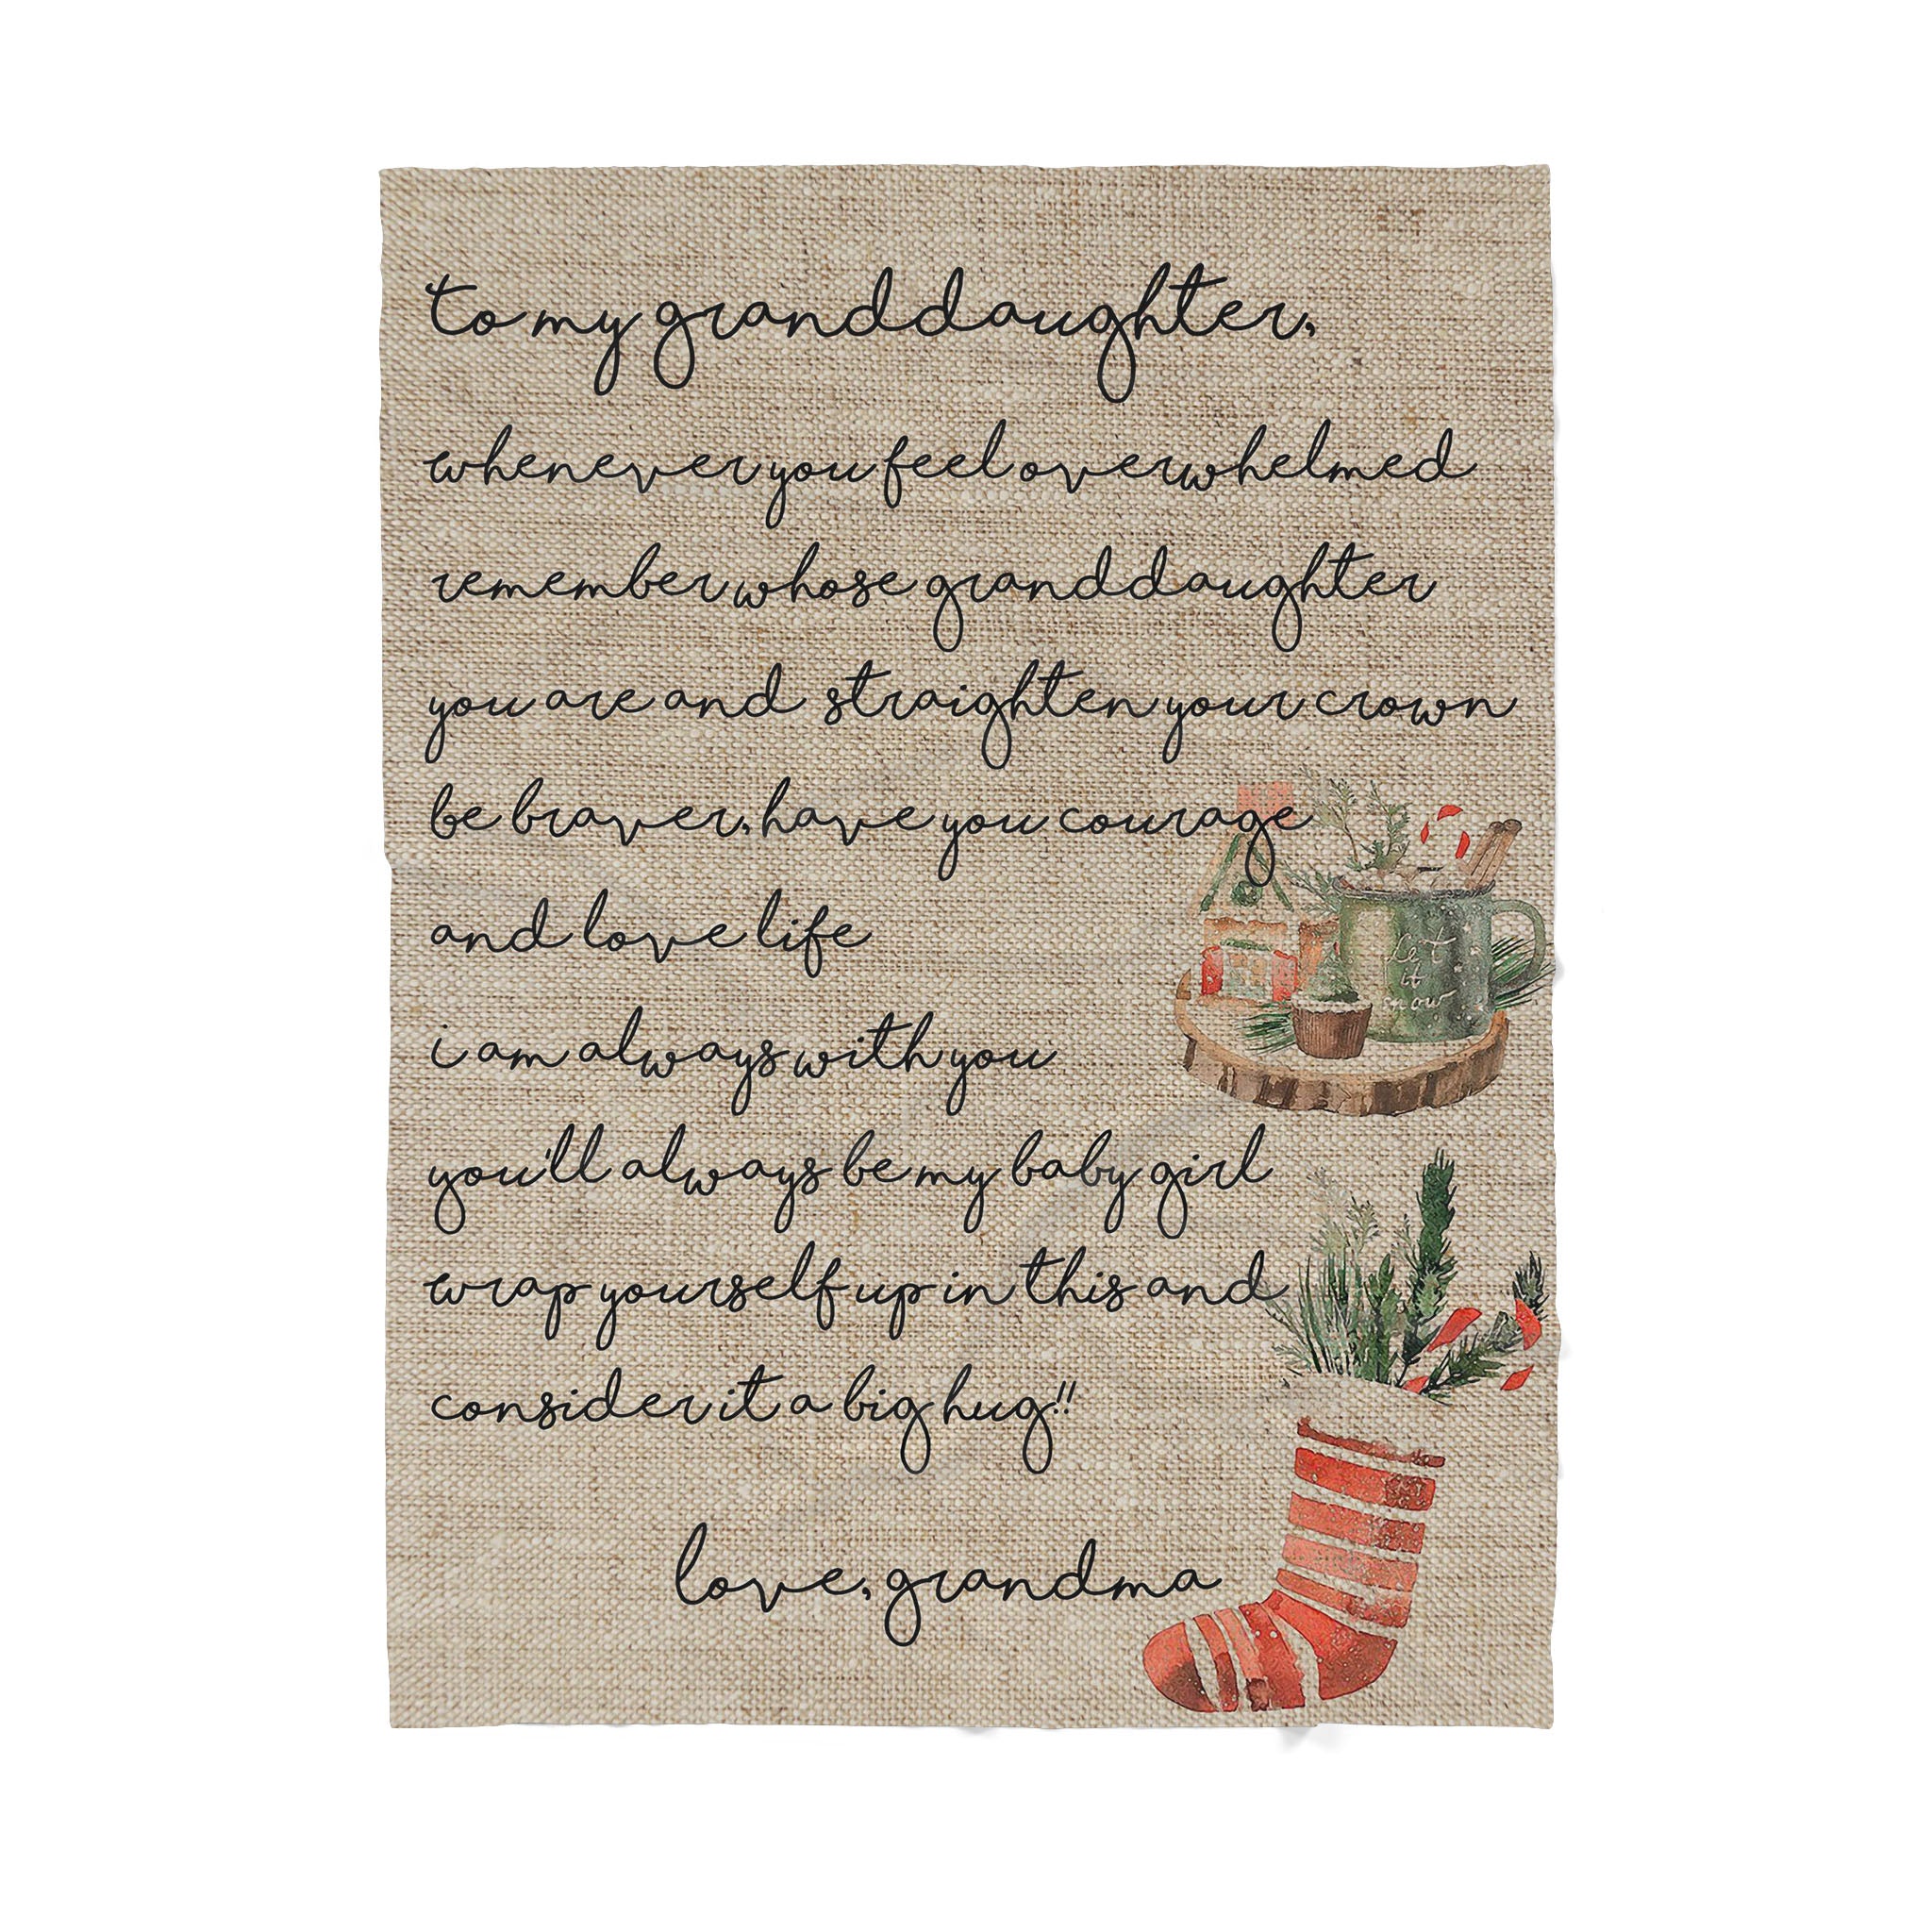 to my granddaughter,
whenever you feel overwhelmed
remember whose granddaughter
you are and straighten your crown
be braver, have you courage
and love life
Let
it
snow
i am always with you
you'll always be my baby girl
wrap yourself up in this and
consider it a big hug!!
love, grandma